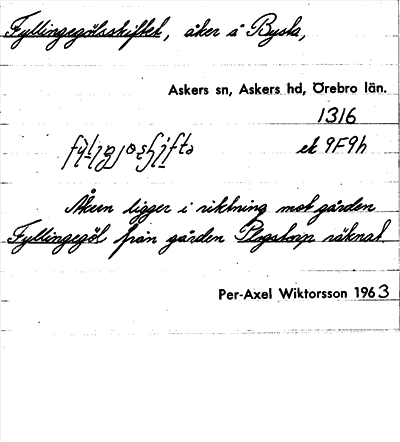 Fyllingegölsskiftet, åker å Bysta,
Askers sn, Askers hd, Örebro län.
1316
ek 9F9h
Åkern ligger i riktning mot gården
Fyllingegöl från gården Plogstorp räknat.
Per-Axel Wiktorsson 1963